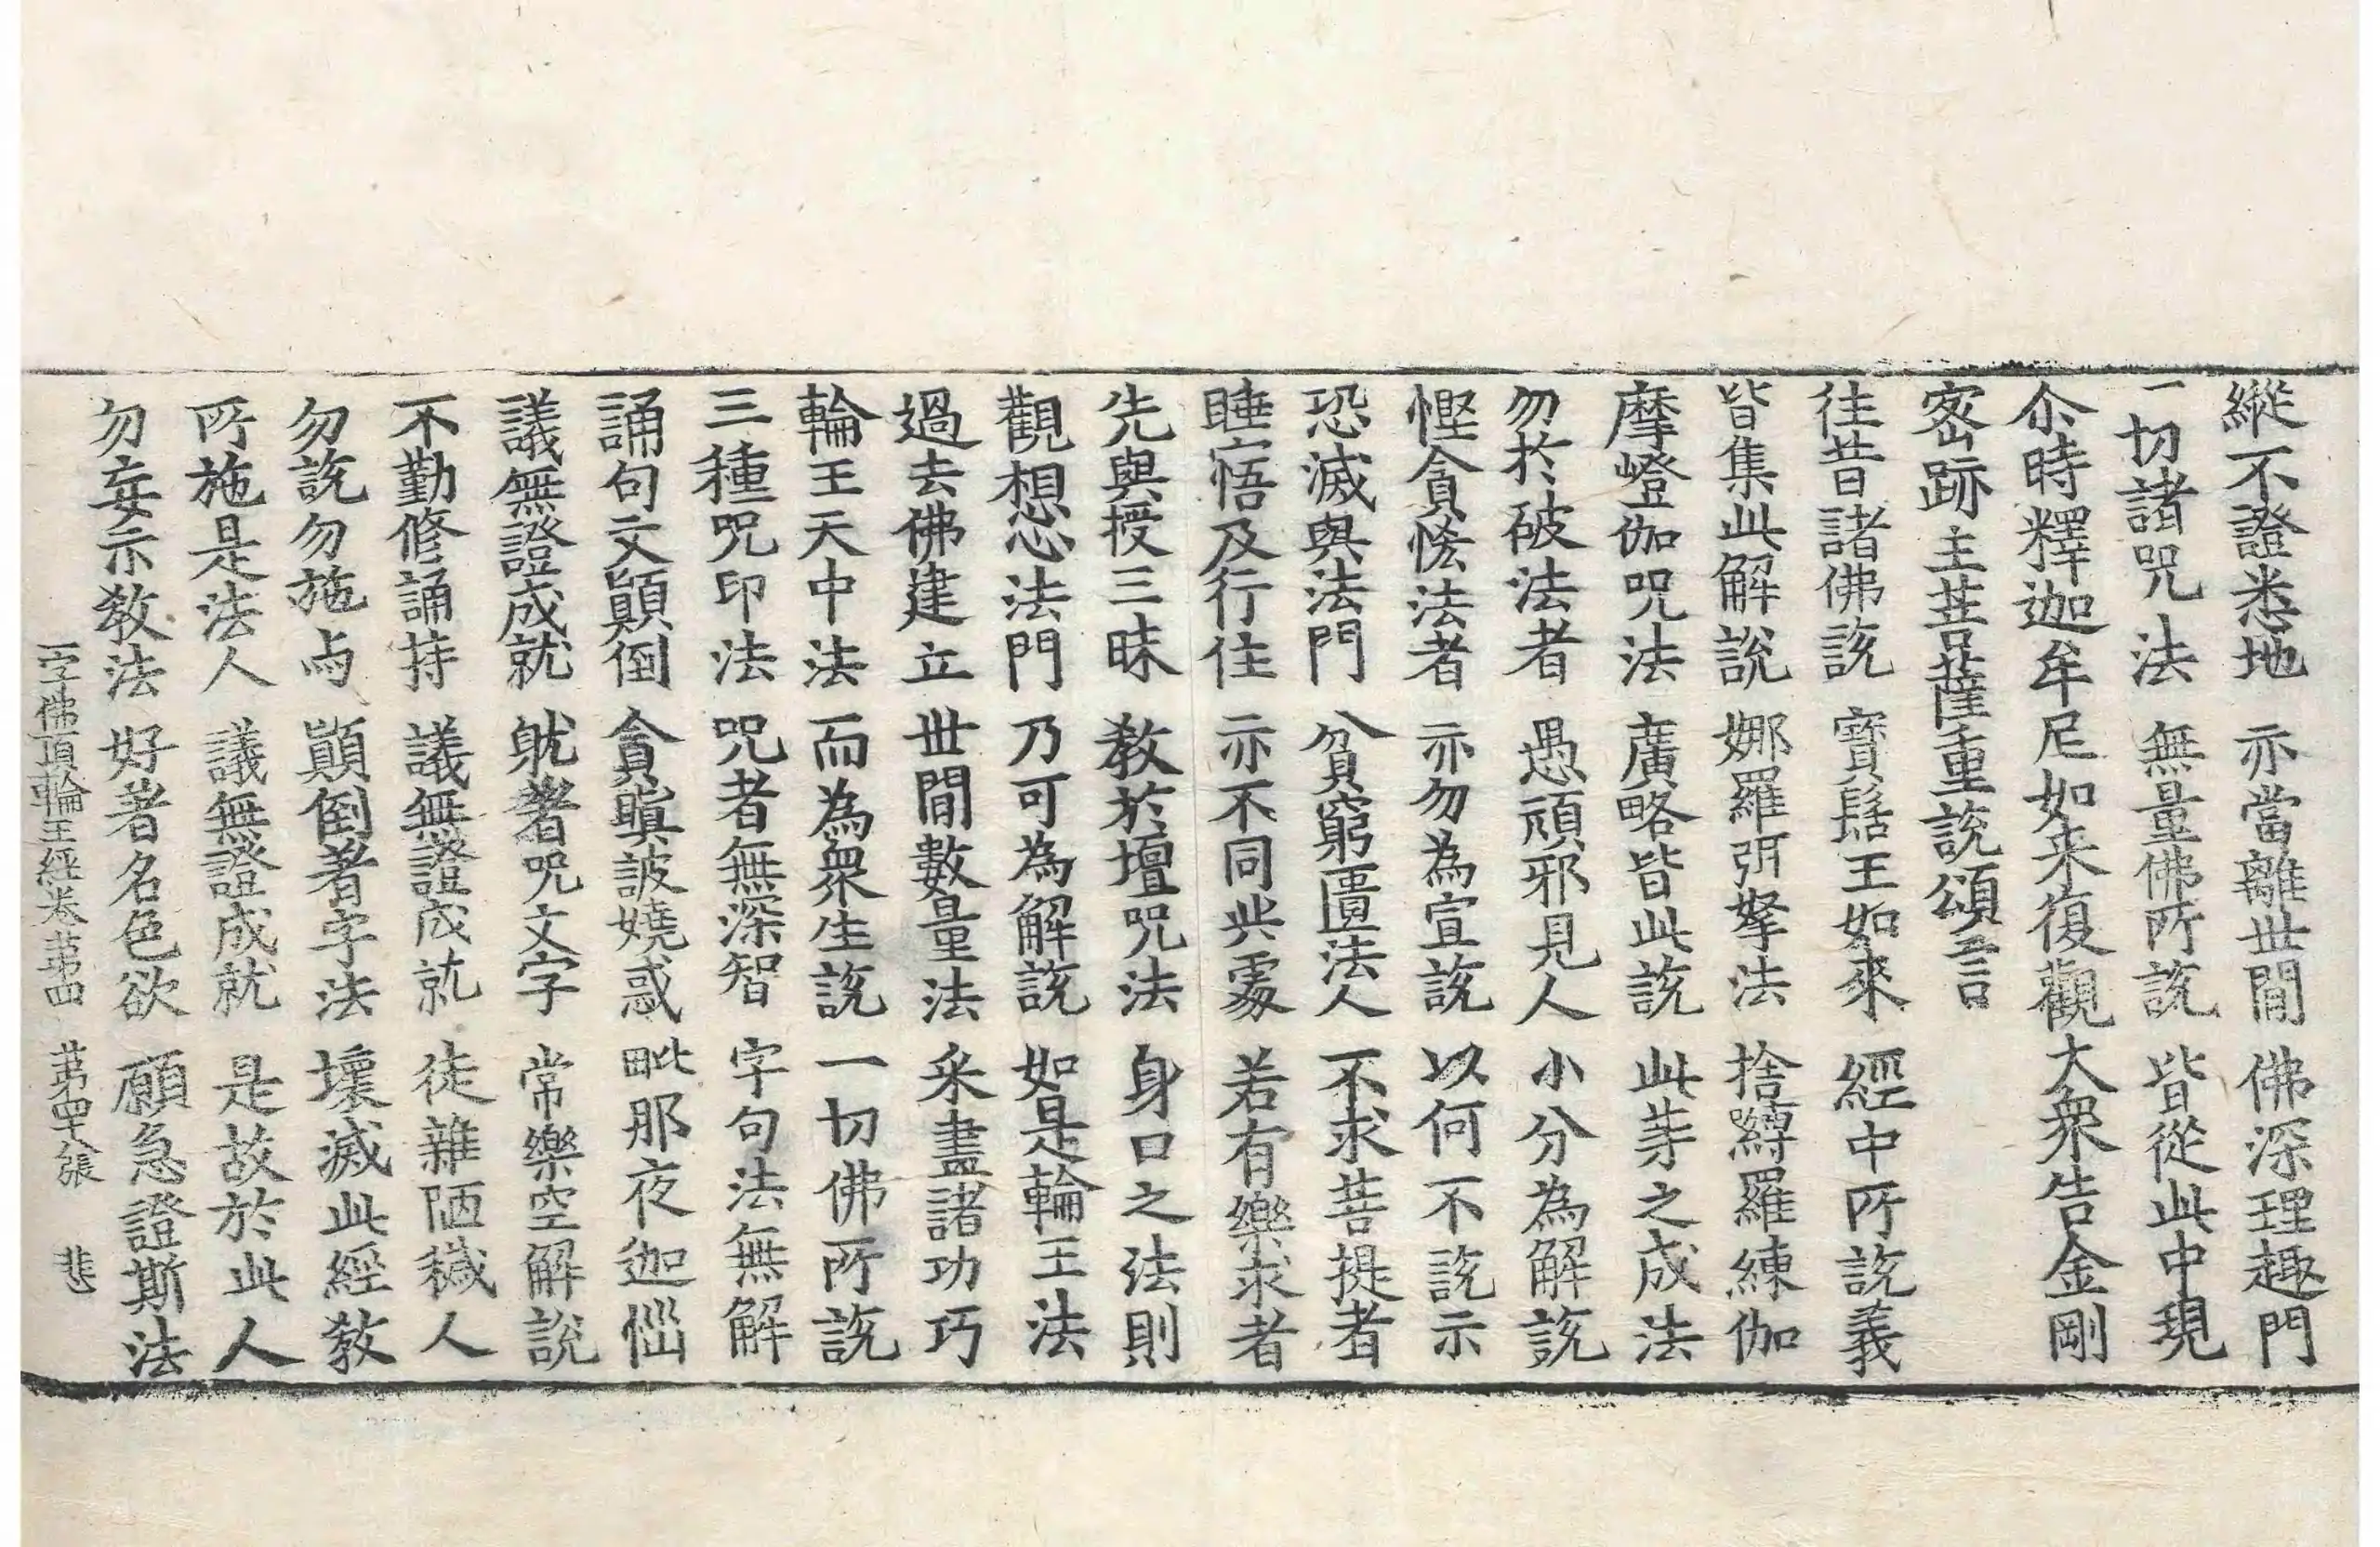 縱不證悉地　亦當離世間　佛深理趣門
一切諸咒法　無量佛所說　皆從此中現
尒時釋迦牟尼如来復觀大衆告金剛
密跡主菩薩重說頌言
往昔諸佛說　寳髻王如來　經中所說義
皆集此解說　娜羅弭拏法　捨縛羅練伽
摩蹬伽咒法　廣略皆此說　此等之成法
勿扵破法者　愚頑邪見人　小分為解說
慳貪悋法者　亦勿為宣說　以何不說示
恐滅與法門　貧窮匱法人　不求菩提者
睡寤及行住　亦不同此處　若有樂求者
先與授三昧　教於壇咒法　身口之法則
觀想法門　乃可為解說　如是輪王法
過去佛建立　世間數量法　采盡諸功巧
輪王天中法　而為衆生說　一切佛所說
三種咒印法　咒者無深智　字句法無解
誦句文顛倒　貪瞋詖嬈惑　毗那夜迦惱
議無證成就　躭著咒文字　常樂空解說
不勤修誦持　議無證成就　徒雜陋穢人
勿說勿施与　顛倒著字法　壞滅此經教
所施是法人　議無證成就　是故於此人
勿妄示教法　好著名色欲　願急證斯法
一字佛頂輪王經卷第四　第四十八張　悲